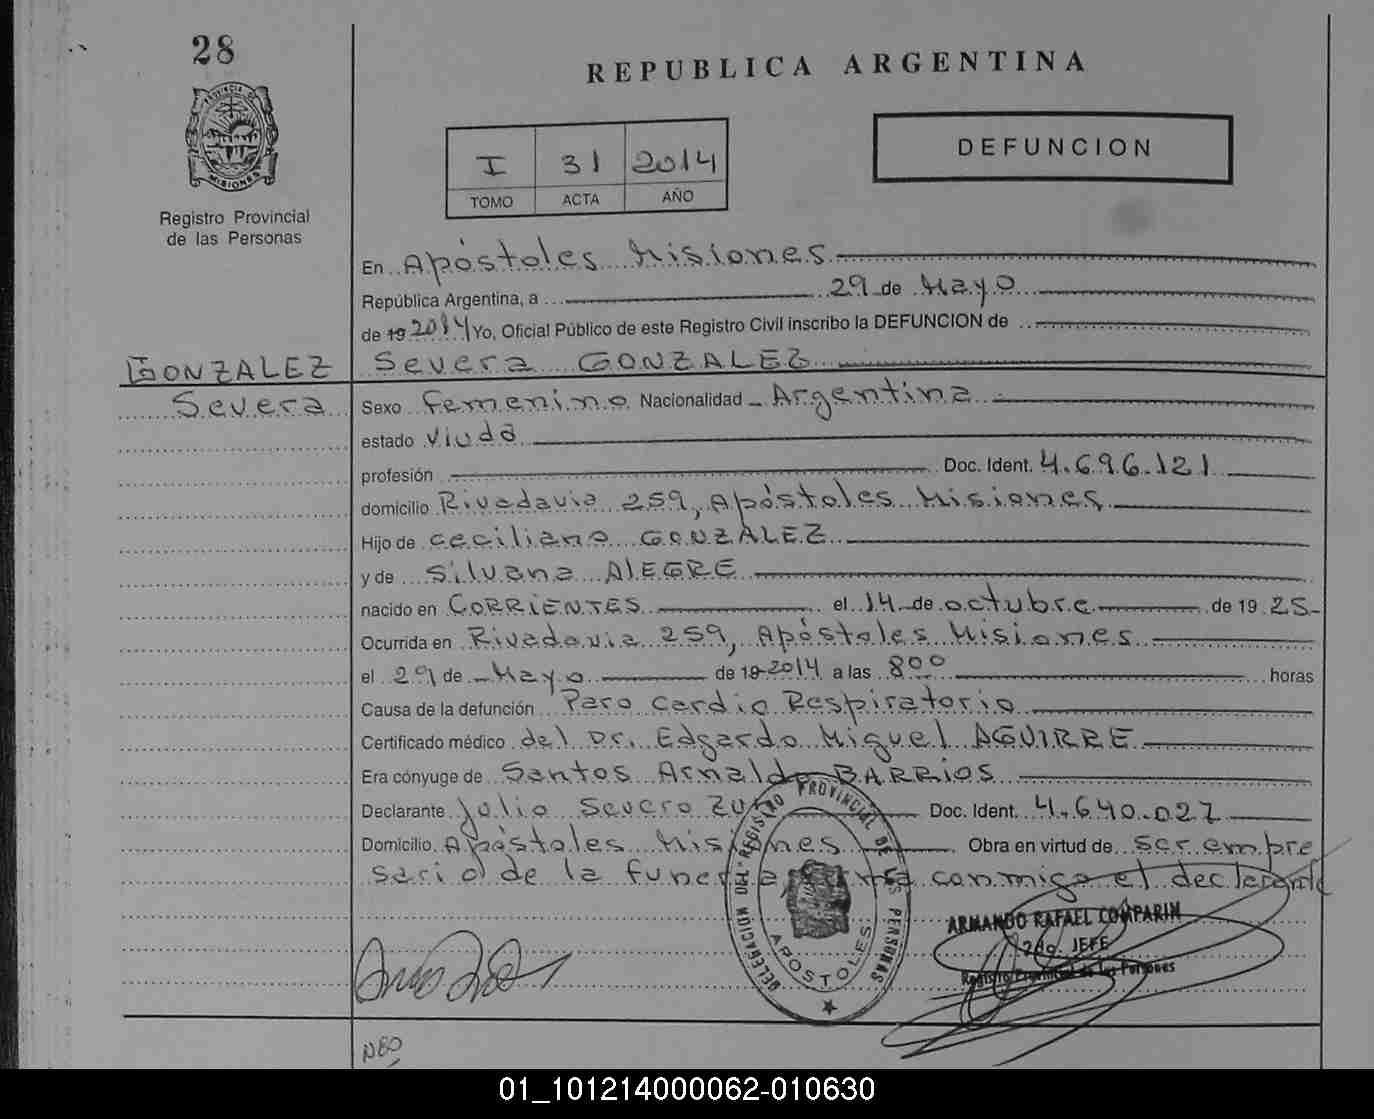 28
REPUBLICA ARGENTINA
PROVINCIA DE
MISIONES
Registro Provincial
de las Personas
I 31 2014
TOMO ACTA AÑO
DEFUNCION
En Apóstoles Misiones
República Argentina, a 29 de Mayo
de 19 2014 Yo, Oficial Público de este Registro Civil inscribo la DEFUNCION de
GONZALEZ Severa GONZALEZ
Severa Sexo Femenino Nacionalidad Argentina
estado Viuda
profesión Doc. Ident. 4.696.121
domicilio Rivadavia 259, Apóstoles Misiones
Hijo de Ceciliano GONZALEZ
y de Silvana ALEGRE
nacido en CORRIENTES el 14 de octubre de 19 25
Ocurrida en Rivadavia 259, Apóstoles Misiones
el 29 de Mayo de 19 2014 a las 8 00 horas
Causa de la defunción Paro Cardio Respiratorio
Certificado médico del Dr. Edgardo Miguel AGUIRRE
Era cónyuge de Santos Arnaldo BARRIOS
Declarante Julio Severo Doc. Ident. 4.640.027
Domicilio Apóstoles Misiones Obra en virtud de ser empre
sario de la conmigo el declarante
DELEGACION DEL REGISTRO PROVINCIAL DE LAS PERSONAS
APOSTOLES
ARMANDO RAFAEL COMPARIN
2do. JEFE
Registro Provincial de las Personas
01_101214000062-010630